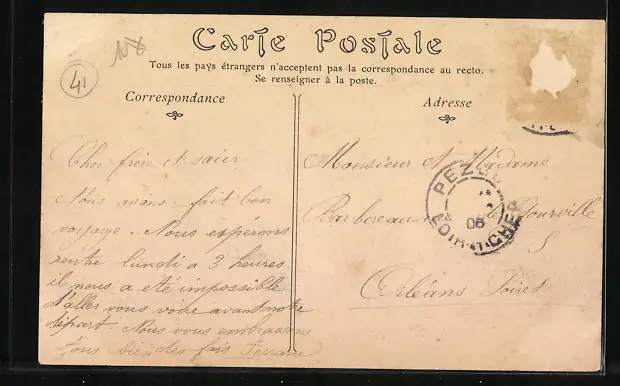 108
41
Carte Postale
Tous les pays étrangers n'acceptent pas la correspondance au recto.
Se renseigner à la poste.
Correspondance
Adresse
Cher frère et sœur
Nous avons fait bon
voyage. Nous espérons
rentre lundi a 3 heures
il nous a eté impossible
d'aller vous voire avant notre
départ Nous vous embrassons
tous bien des fois
Monsieur et Madame
Barbereau de Gourville
5
Orléans Loiret
PEZOU
06
LOIR-ET-CHER